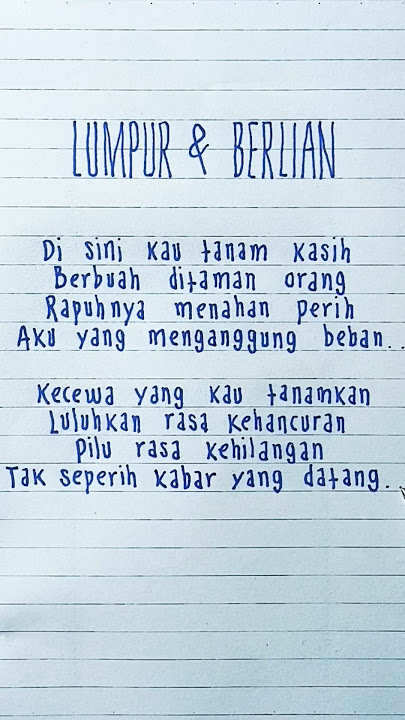 LUMPUR & BERLIAN
Di sini kau tanam kasih
Berbuah ditaman orang
Rapuhnya menahan perih
Aku yang menganggung beban..
Kecewa yang kau tanamkan
Luluhkan rasa kehancuran
Pilu rasa kehilangan
Tak seperih kabar yang datang..